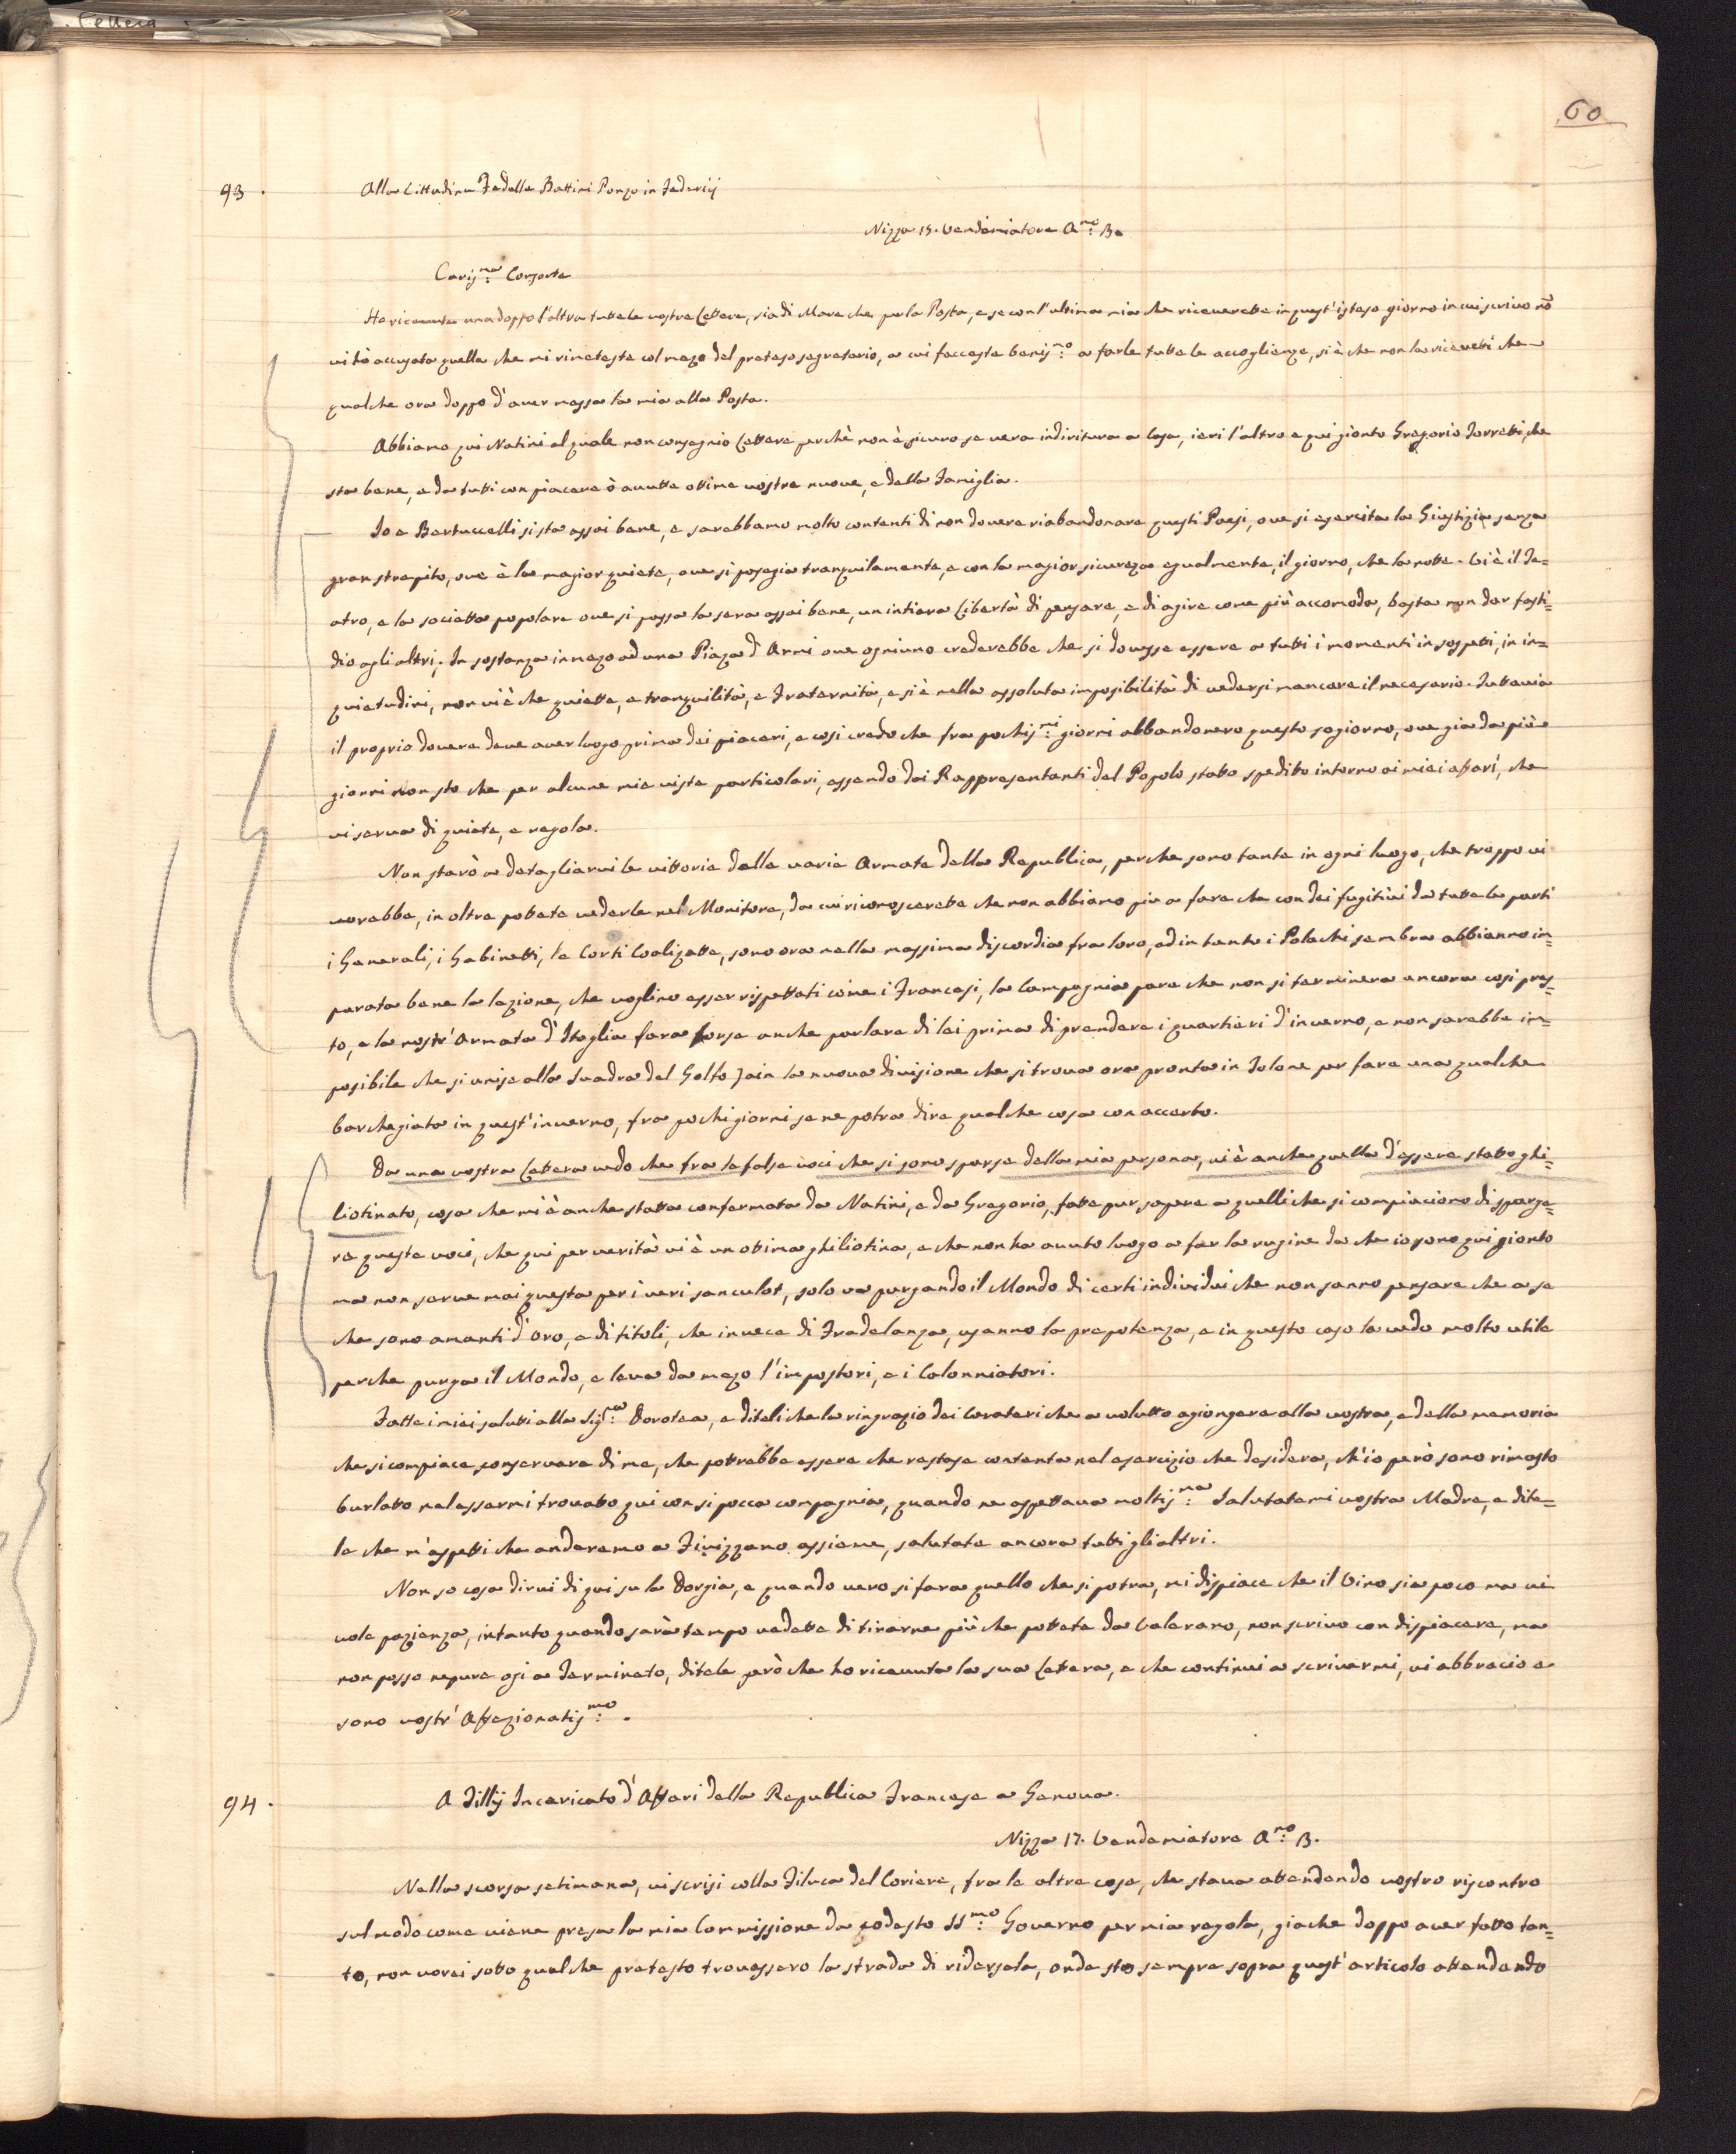 Lettera
60
93.
Alla Cittadina Fedelle Battini Ponzo in Federiij
Nizza 15. Vendemiatore A:no 3.
Carij:ma Consorte
Ho ricevuta una doppo l'altra tutte le vostre Lettere, sia di Mare che per la Posta, e se con l'ultima mia che riceverete in quest'isteso giorno in cui scrivo nõ
vi hò accusata quella che mi rimeteste col mezo del preteso segretario, a cui faccesti benis:mo a farle tutte le accoglienze, si è che non la ricevetti che
qualche ora doppo d'aver messa la mia alla Posta.
Abbiamo qui Natini al quale non consegnio Lettere perchè non è sicuro se verà indiritura a Casa, ieri l'altro e qui gionto Gregorio Torretti, che
sta bene, e da tutti con piacere ò avutte ottime vostre nuove, e della Famiglia.
Io e Bertuccelli si sta assai bene, e sarebbamo molto contenti di non dovere riabandonare questi Paesi, ove si esercita la Giustizia senza
gran strepito, ove è la magior quiete, ove si posegia tranquilamente, e con la magior sicurezza egualmente, il giorno, che la notte. Vi è il Te=
atro, e la sociatta popolare ove si passa la sera assai bene, un intiera Libertà di pensare, e di agire come più accomoda, basta non dar fasti=
dio agli altri; In sostanza in mezo ad una Piaza d'Armi ove ogniuno crederebbe che si dovesse essere a tutti i momenti in sospetti, in in=
quietudini, non vi è che quiette, e tranquilità, e Fraternità, e si è nella assoluta imposibilità di vedersi mancare il necesario. Tuttavia
il proprio dovere deve aver luogo prima dei piaceri, e cosi credo che fra pochis:mi giorni abbandonero questo sogiorno, ove gia da più
giorni non sto che per alcune mie viste particolari, essendo dai Rappresentanti del Popolo stato spedito intorno ai miei affari, che
vi serva di quiete, e regola.
Non starò a detagliarvi le vittorie delle varie Armate della Republica, perche sono tante in ogni luogo, che troppo vi
vorebbe, in oltre potete vederle nel Monitore, da cui riconoscerete che non abbiamo piu a fare che con dei fugitivi da tutte le parti
i Generali, i Gabinetti, le Corti Coalizatte, sono ora nella massima discordia fra loro, ed in tanto i Polachi sembra abbianno im=
parata bene la lezione, che voglino esser rispettati come i Francesi, la Campagnia pare che non si terminera ancora cosi pres=
to, e la nostr'Armata d'Itaglia fara forse anche parlare di lei prima di prendere i quartieri d'inverno, e non sarebbe im=
posibile che si unise alla Suadra del Golfo Jain la nuova divisione che si trova ora pronta in Tolone per fare una qualche
barchegiata in quest'inverno, fra pochi giorni se ne potra dire qualche cosa con accerto.
Da una vostra Lettera vedo che fra le false voci che si sono sparse della mia persona, vi è anche quella d'essere stato ghi=
liotinato, cosa che mi è anche statta confermata da Natini, e da Gregorio, fatte pur sapere a quelli che si compiaciono di sparge=
re queste voci, che qui per verità vi è un otima ghiliotina, e che non ha avuto luogo a far la rugine da che io sono qui gionto
ma non serve mai questa per i veri sanculot, solo va purgando il Mondo di certi individui che non sanno pensare che a se
che sono amanti d'oro, e di titoli, che invece di Fradelanza, usanno la prepotenza, e in questo caso la vedo molto utile
perche purga il Mondo, e leva da mezo l'impostori, e i Calonniatori.
Fatte i miei saluti alla Sig:ra Dorotea, e diteli che la ringrazio dei Carateri che a volutto agiongere alla vostra, e della memoria
che si compiace conservare di me, che potrebbe essere che restase contenta nel esercizio che desidera, ch'io però sono rimasto
burlato nel essermi trovato qui con si pocca compagnia, quando ne aspettava moltis:ma Salutatemi vostra Madre, e dite=
le che m'aspetti che anderemo a Fivizzano assieme, salutate ancora tutti gli altri.
Non so cosa dirvi di qui su la Dorgia, e quando vero si fara quello che si potra, mi dispiace che il Vino sia poco ma vi
vole pazienza, intanto quando sarà tempo vedette di tirarne più che pottete da Valerano, non scrivo con dispiacere, ma
non posso nepure ogi a Terminato, ditele però che ho ricevuta la sua Lettera, e che continui a scrivermi, vi abbracio e
sono vostr' Affezionatis:mo.
94.
A Tillij Incaricato d'Affari della Republica Francese a Genova.
Nizza 17. Vendemiatore A:no 3.
Nella scorsa setimana, vi scrisi colla Filuca del Coriere, fra le altre cose, che stava attendendo vostro riscontro
sul modo come viene presa la mia Commissione da codesto SS:mo Governo per mia regola, giache doppo aver fatto tan=
to, non vorei sotto qualche pretesto trovassero la strada di ridersela, onde sto sempre sopra quest'articolo attendendo